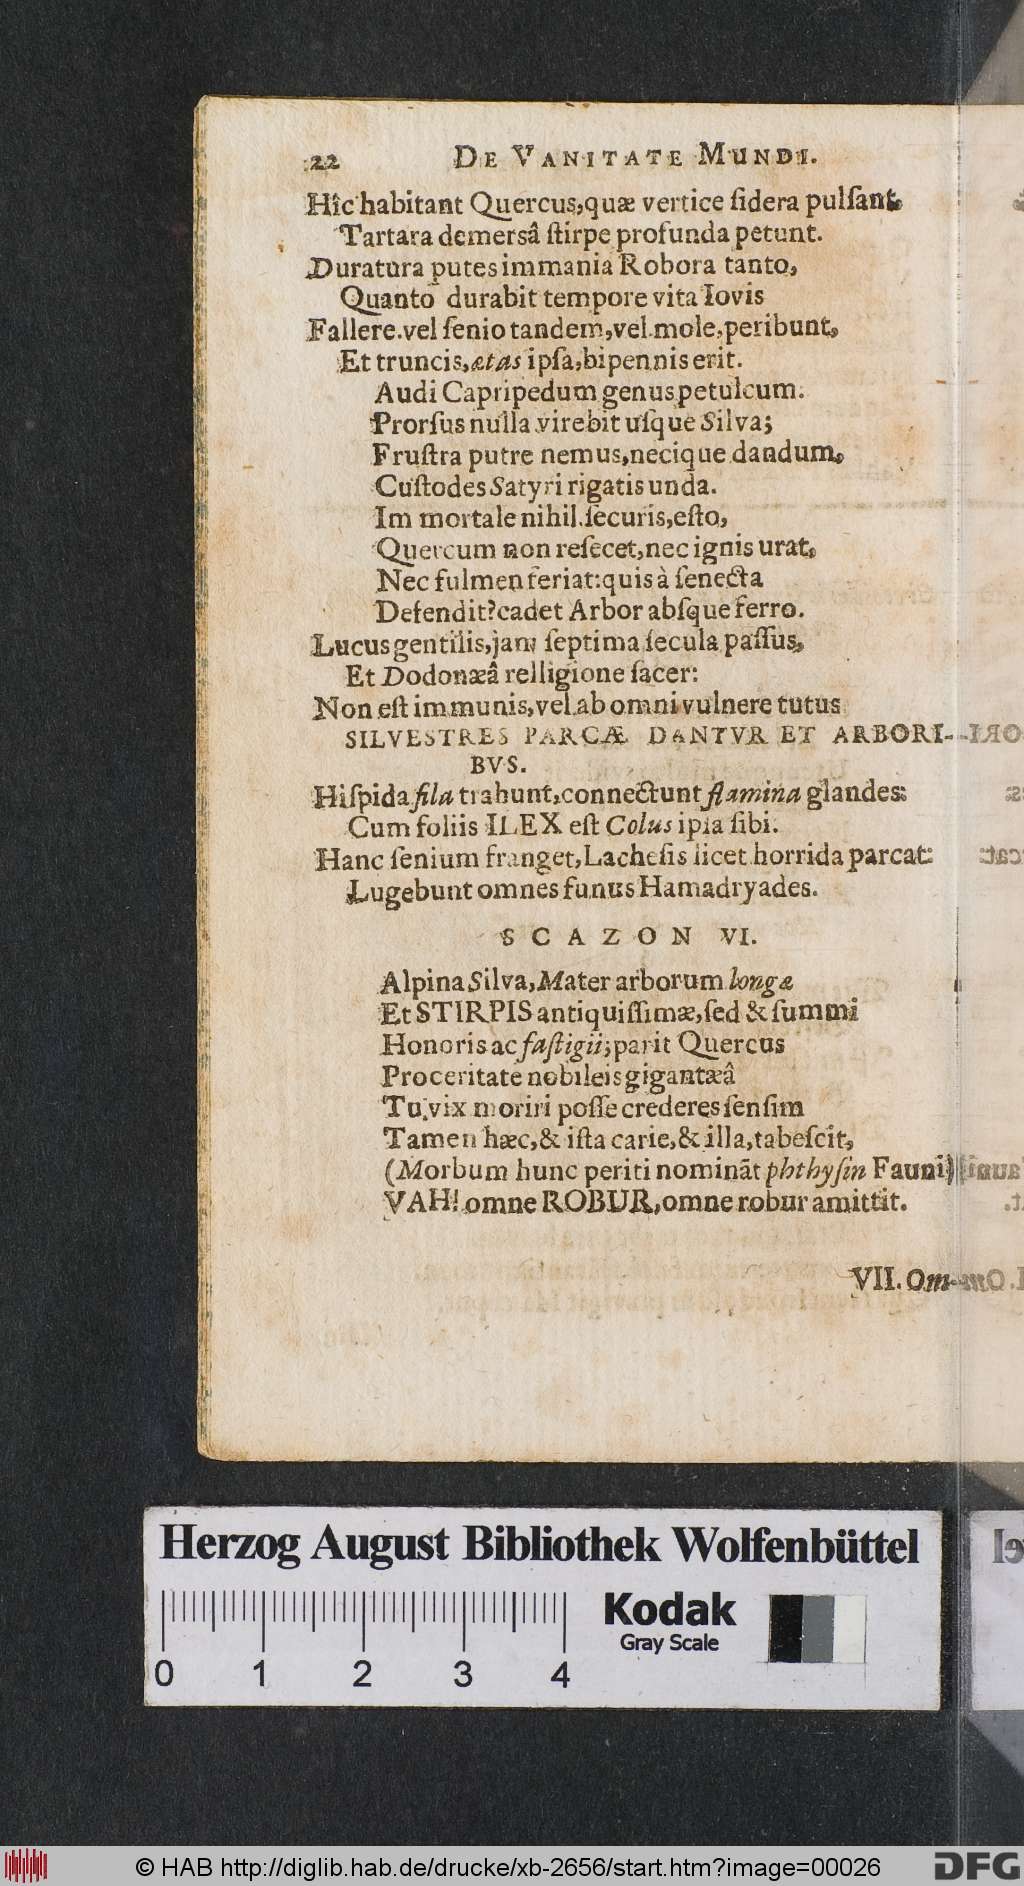 22 DE VANITATE MUNDI.
Hîc habitant Quercus, quæ vertice ſidera pulſant,
Tartara demersâ ſtirpe profunda petunt.
Duratura putes immania Robora tanto,
Quanto durabit tempore vita Iovis
Fallere. vel ſenio tandem, vel mole, peribunt,
Et truncis, ætas ipſa, bipennis erit.
Audi Capripedum genus petulcum.
Prorſus nulla virebit uſque Silva;
Fruſtra putre nemus, necique dandum,
Cuſtodes Satyri rigatis unda.
Im mortale nihil. ſecuris, eſto,
Quercum non reſecet, nec ignis urat,
Nec fulmen feriat: quis à ſenecta
Defendit? cadet Arbor abſque ferro.
Lucus gentilis, jam ſeptima ſecula paſſus,
Et Dodonæâ relligione ſacer:
Non eſt immunis, vel ab omni vulnere tutus
SILVESTRES PARCÆ DANTVR ET ARBORI-
BVS.
Hiſpida fila trahunt, connectunt flamina glandes:
Cum foliis ILEX eſt Colus ipſa ſibi.
Hanc ſenium franget, Lacheſis licet horrida parcat:
Lugebunt omnes funus Hamadryades.
SCAZON VI.
Alpina Silva, Mater arborum longæ
Et STIRPIS antiquiſſimæ, ſed & ſummi
Honoris ac faſtigii; parit Quercus
Proceritate nobileis gigantæâ
Tu vix moriri poſſe crederes ſenſim
Tamen hæc, & iſta carie, & illa, tabeſcit,
(Morbum hunc periti nominãt phthyſin Fauni)
VAH! omne ROBUR, omne robur amittit.
VII. Om-
Herzog August Bibliothek Wolfenbüttel
Kodak
Gray Scale
0 1 2 3 4
© HAB http://diglib.hab.de/drucke/xb-2656/start.htm?image=00026
DFG